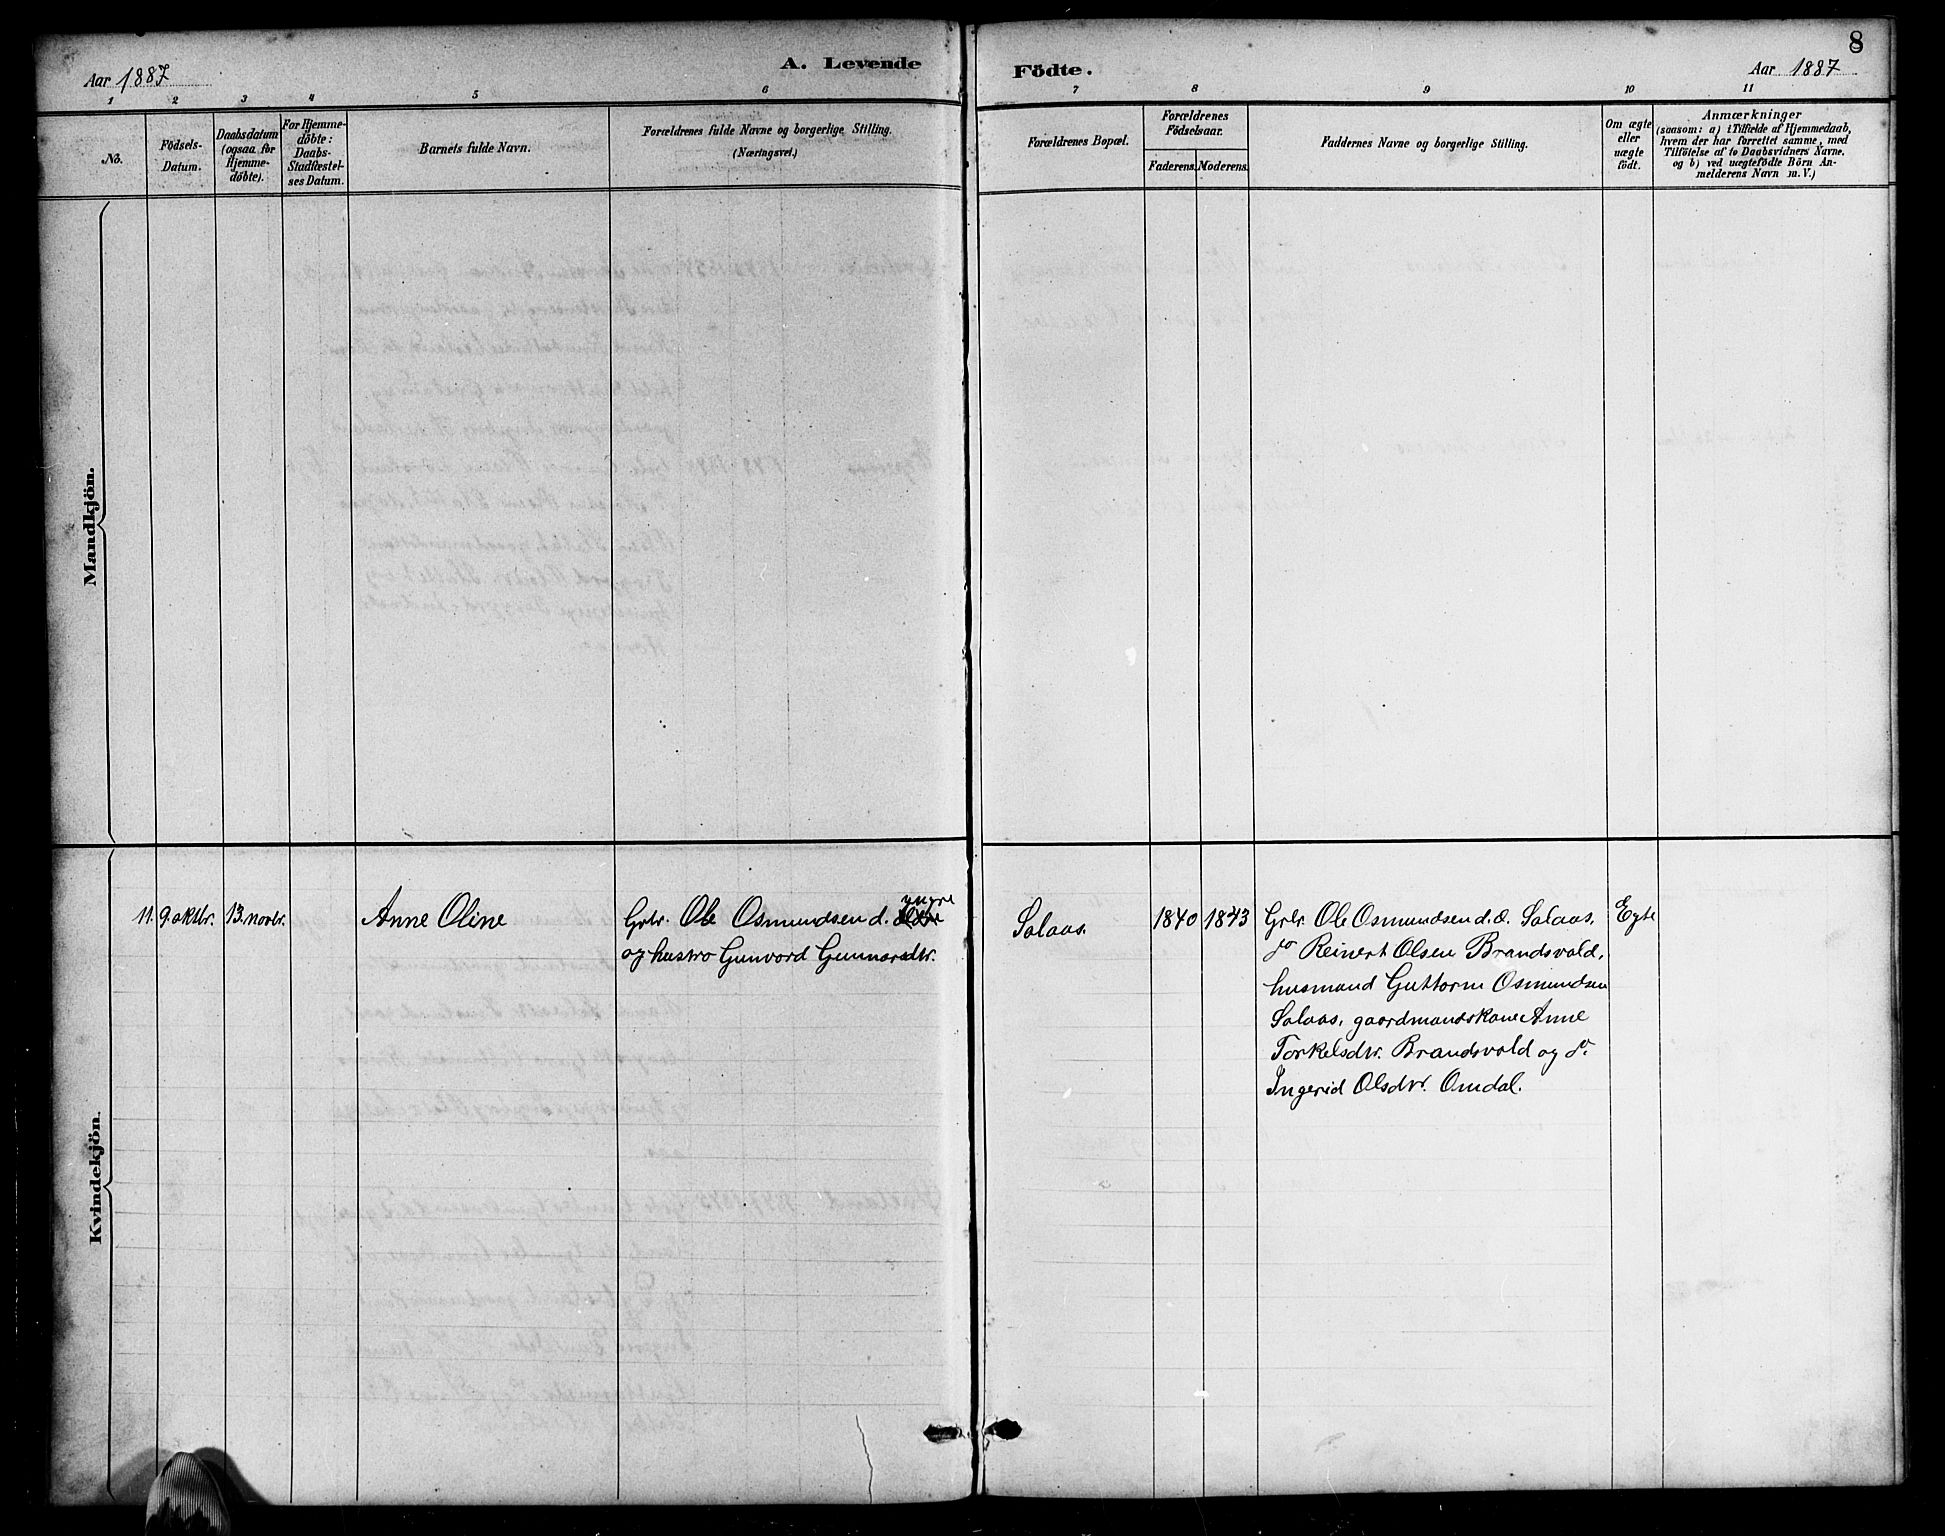 8
Aar 1887
A. Levende
Födte.
Aar 1887
1 2 3 4 5 6 7 8 9 10 11
No.
Födsels-
Datum.
Daabsdatum
(ogsaa for
Hjemme-
døbte).
For Hjemme-
døbte:
Daabs-
Stadfæstel-
ses Datum.
Barnets fulde Navn.
Forældrenes fulde Navne og borgerlige Stilling.
(Næringsvei.)
Forældrenes Bopæl.
Forældrenes
Födselsaar.
Faderens.
Moderens.
Faddernes Navne og borgerlige Stilling.
Om ægte
eller
uægte
födt.
Anmærkninger
(saasom: a) i Tilfælde af Hjemmedaab,
hvem der har forrettet samme, med
Tilföielse af to Daabsvidners Navne,
og b) ved uægtefödte Börn An-
melderens Navn m. V.)
Mandkjön.
Kvindekjön.
11. 9. oktbr. 13. novbr.
Anne Oline
yngre
Grbr. Ole Osmundsen d.
og hustro Gunvord Gunnarsdtr.
Salaas.
1840 1843
Grbr. Ole Osmundsen d. æ. Salaas,
do Reinert Olsen Brandsvold,
husmand Guttorm Osmundsen
Salaas, gaardmandskone Anne
Torkelsdtr. Brandsvold og do.
Ingerid Olsdtr. Omdal.
Egte